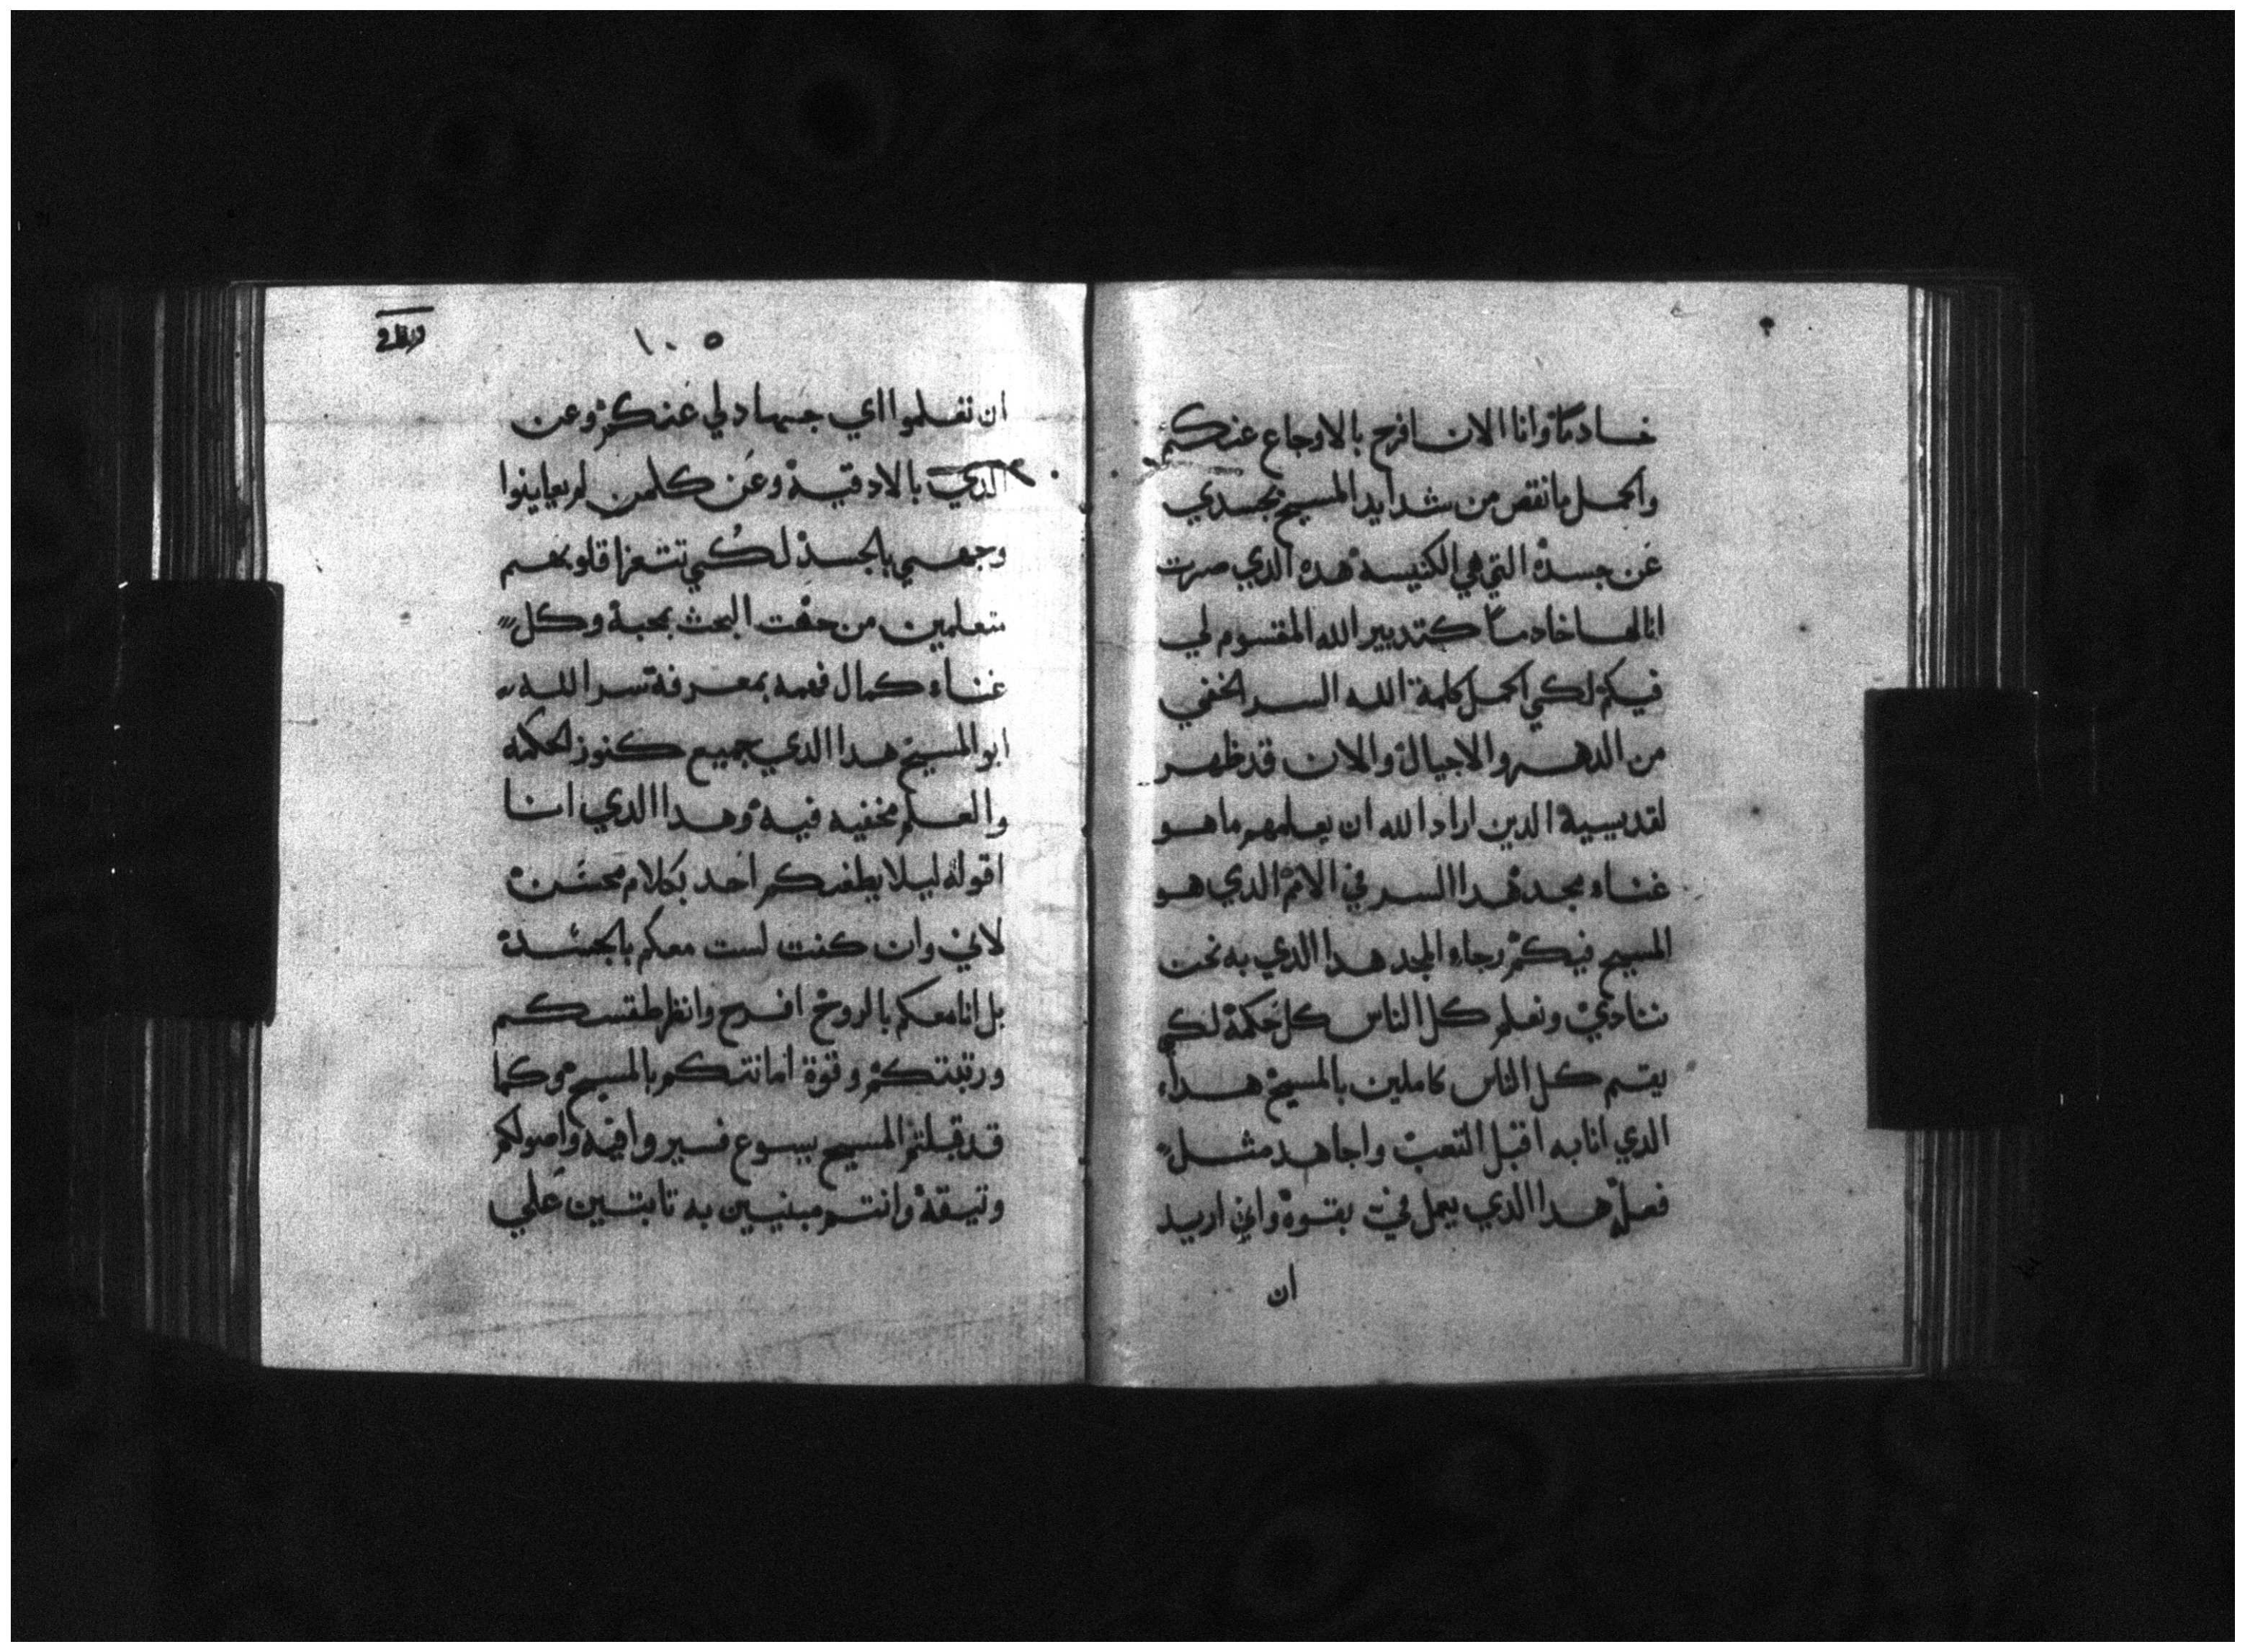 خادمًا وانا الان افرح بالاوجاع عنكم
واكمل ما نقص من شدايد المسيح بجسدي
عن جسده التي هي الكنيسه هده الدي صرت
انا لها خادمًا كتدبير الله المقسوم لي
فيكم لكي اكمل كلمة الله السر الخفي
من الدهر والاجيال والان قد ظهر
لقديسية الدين اراد الله ان يعلمهم ما هو
غناء مجد هدا السر في الامم الدي هو
المسيح فيكم رجاء المجد هدا الدي به نحن
ننادي ونعلم كل الناس كل حكمة لكي
يتم كل الناس كاملين بالمسيح هدا
الدي انا به اقبل التعب واجاهد مثل
فعله هدا الدي يعمل في بقوة واني اريد
ان
١٠٥
ان تعلموا اي جهاد لي عنكم وعن
الدي بالادقية وعن كلمن لم يعاينوا
وجهي بالجسد لكي تتعزا قلوبهم
متعلمين من حقت البحث بمحبة وكل
غناء كمال فهمه بمعرفة سر الله
ابو المسيح هدا الدي جميع كنوز الحكمه
والعلم مخفيه فيه وهدا الدي انا
اقوله ليلا يطغيكم احد بكلام محسن
لاني وان كنت لست معكم بالجسد
بل انا معكم بالروح افرح وانظر طقسكم
ورتبتكم وقوة امانتكم بالمسيح وكما
قد قبلتم المسيح يسوع فسيروا فيه واصولكم
وتيقة وانتم مبنيين به تابتين علي